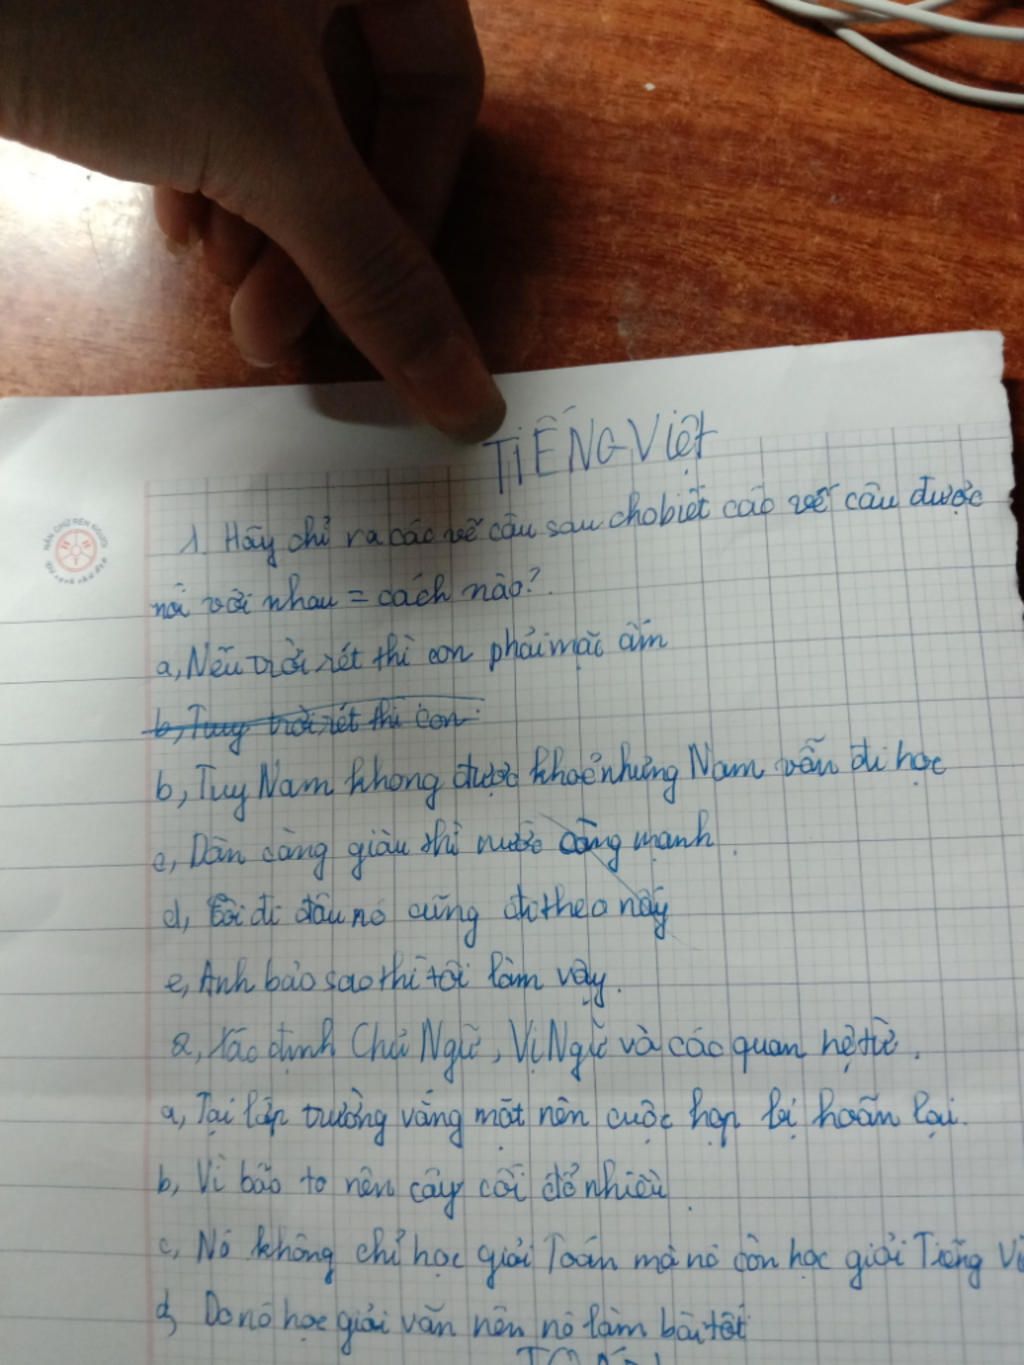 TiẾNG Việt
1. Hãy chỉ ra các vế câu sau cho biết các vế câu được
nối với nhau = cách nào?.
a, Nếu trời rét thì con phải mặc ấm
b, Tuy trời rét thì con
b, Tuy Nam không được khoẻ nhưng Nam vẫn đi học
c, Dân càng giàu thì nước càng mạnh.
d, Tôi đi đâu nó cũng đi theo nấy
e, Anh bảo sao thì tôi làm vậy.
2, Xác định Chủ Ngữ, Vị Ngữ và các quan hệ từ.
a, Tại lớp trưởng vắng mặt nên cuộc họp bị hoãn lại.
b, Vì bão to nên cây cối đổ nhiều.
c, Nó không chỉ học giỏi Toán mà nó còn học giỏi Tiếng Vi
d, Do nó học giỏi văn nên nó làm bài tốt